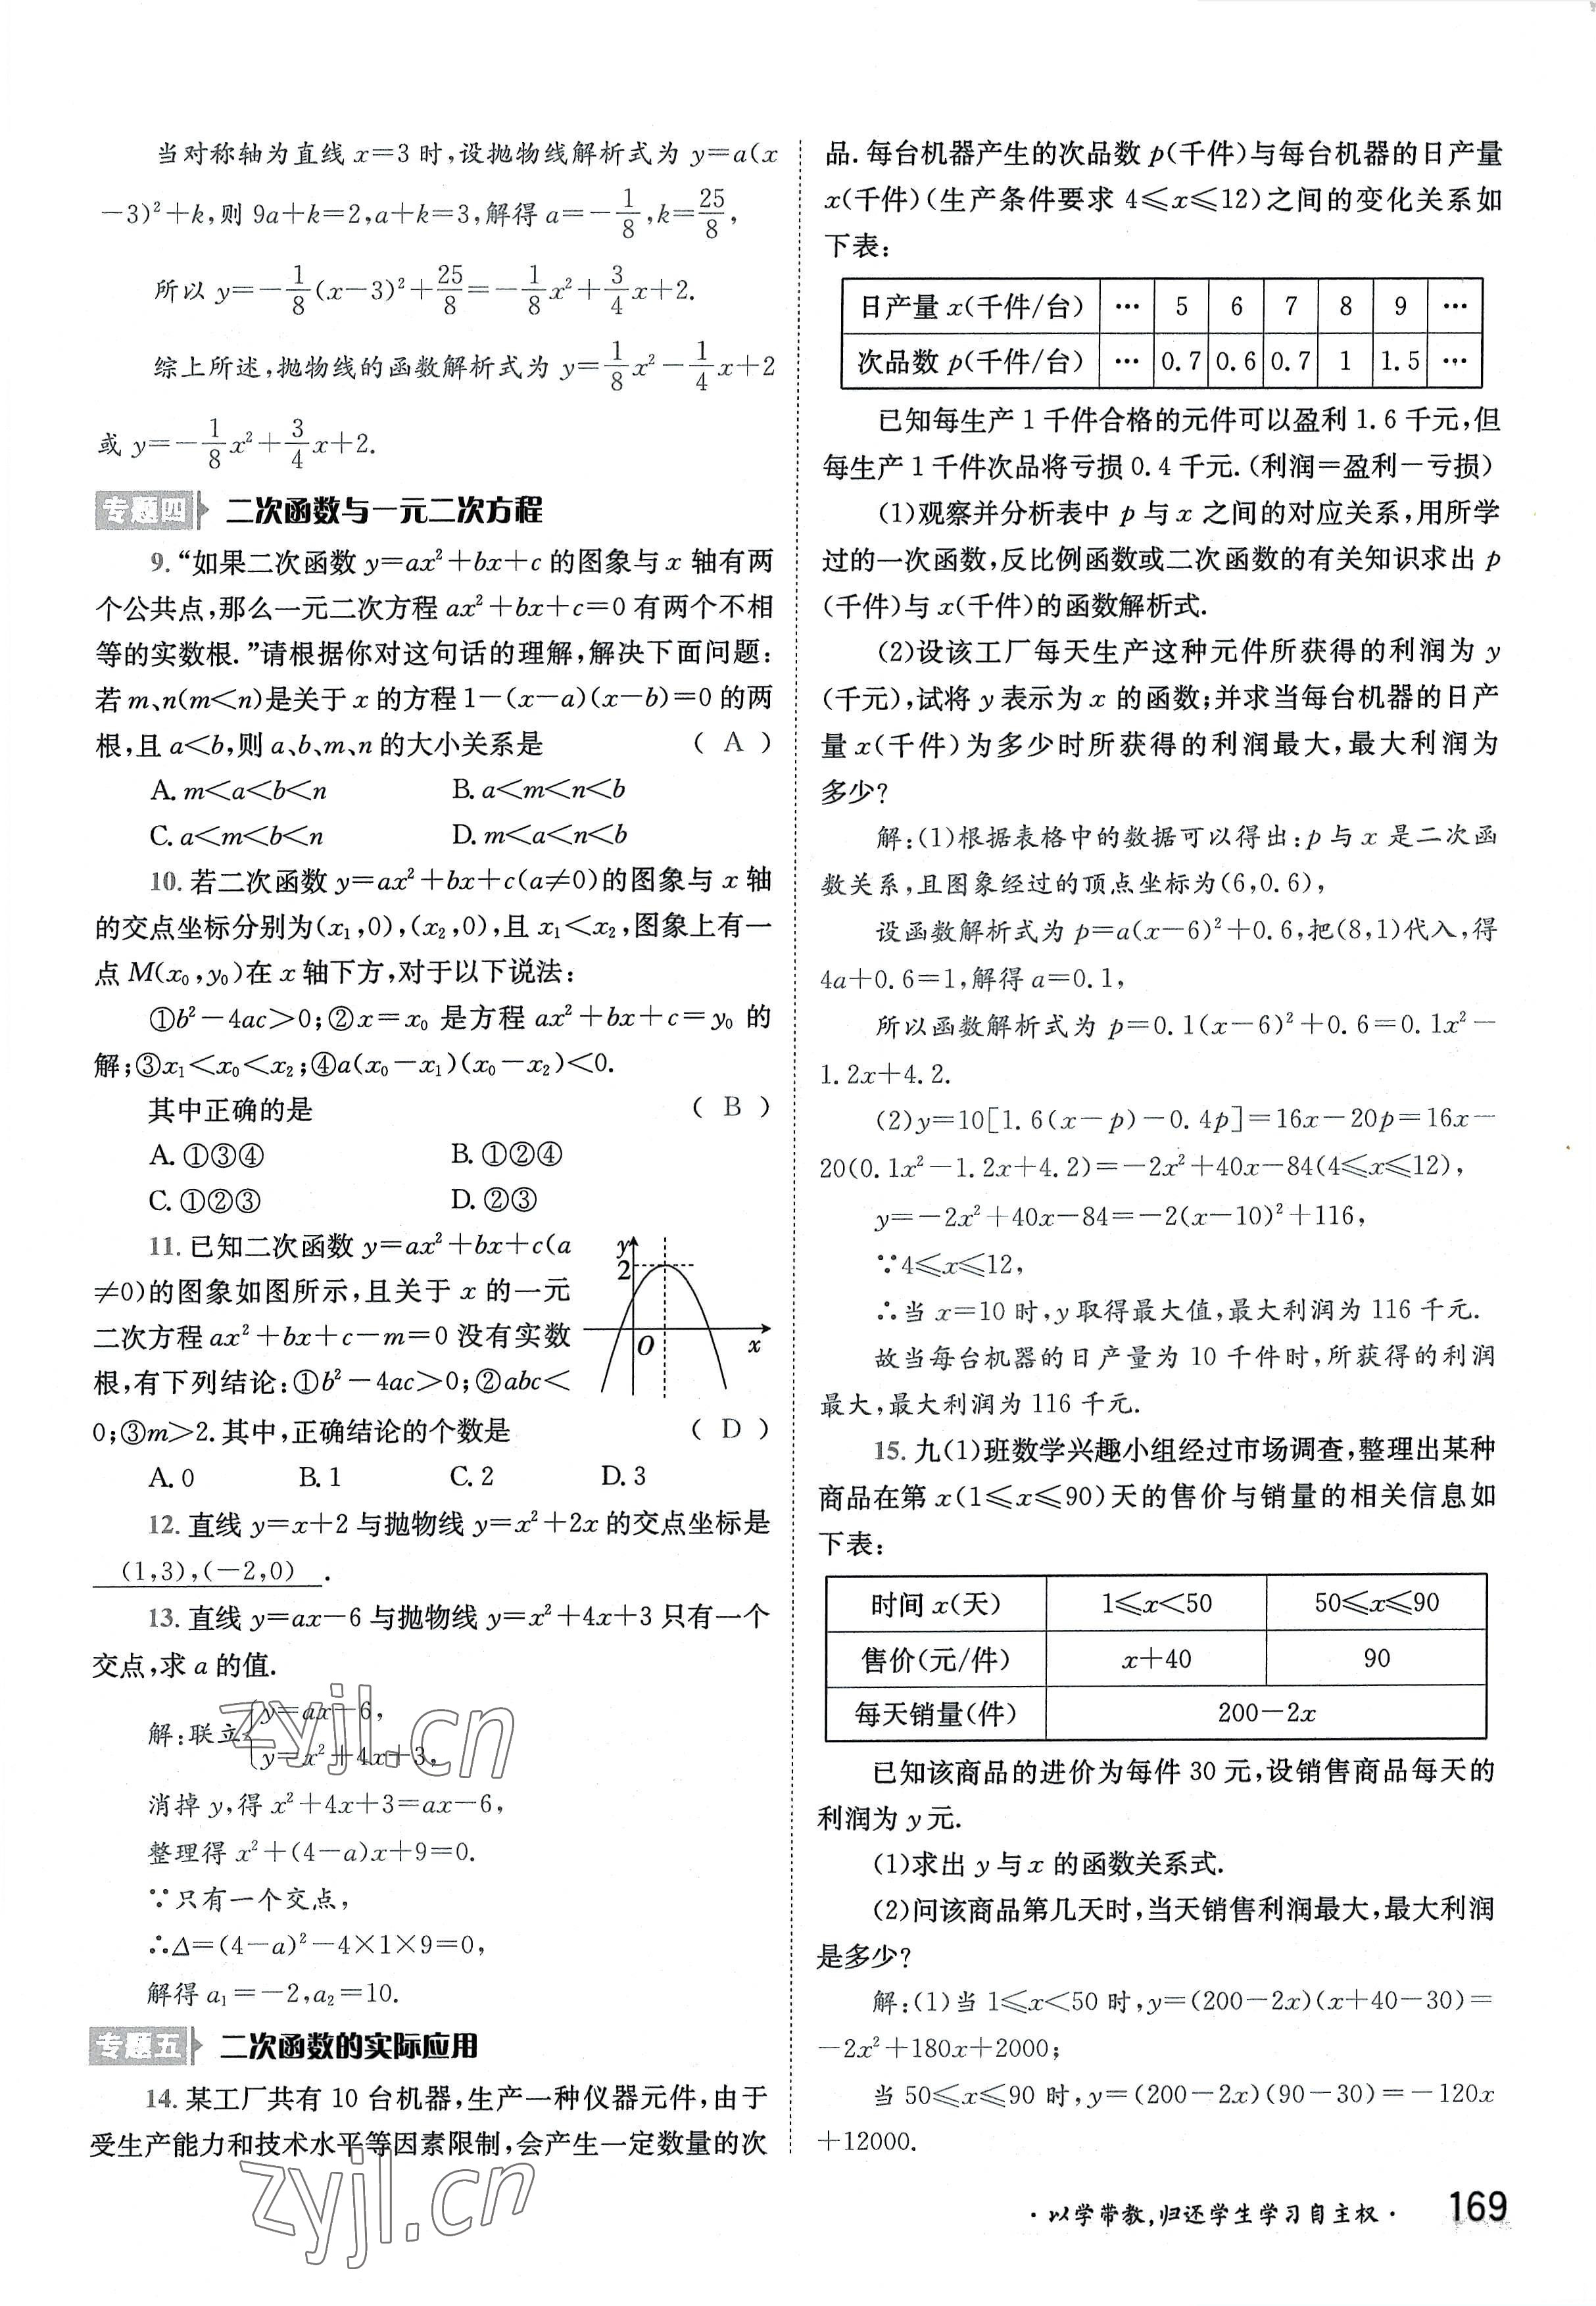 当对称轴为直线 x=3 时,设抛物线解析式为 y=a(x
-3)²+k,则 9a+k=2,a+k=3,解得 a=-1/8,k=25/8,
所以 y=-1/8(x-3)²+25/8=-1/8x²+3/4x+2.
综上所述,抛物线的函数解析式为 y=1/8x²-1/4x+2
或 y=-1/8x²+3/4x+2.
专题四 二次函数与一元二次方程
9. “如果二次函数 y=ax²+bx+c 的图象与 x 轴有两
个公共点,那么一元二次方程 ax²+bx+c=0 有两个不相
等的实数根.”请根据你对这句话的理解,解决下面问题:
若 m、n(m<n)是关于 x 的方程 1-(x-a)(x-b)=0 的两
根,且 a<b,则 a、b、m、n 的大小关系是 ( A )
A. m<a<b<n B. a<m<n<b
C. a<m<b<n D. m<a<n<b
10. 若二次函数 y=ax²+bx+c(a≠0)的图象与 x 轴
的交点坐标分别为(x₁,0),(x₂,0),且 x₁<x₂,图象上有一
点 M(x₀,y₀)在 x 轴下方,对于以下说法:
①b²-4ac>0;②x=x₀ 是方程 ax²+bx+c=y₀ 的
解;③x₁<x₀<x₂;④a(x₀-x₁)(x₀-x₂)<0.
其中正确的是 ( B )
A. ①③④ B. ①②④
C. ①②③ D. ②③
11. 已知二次函数 y=ax²+bx+c(a
≠0)的图象如图所示,且关于 x 的一元
二次方程 ax²+bx+c-m=0 没有实数
根,有下列结论:①b²-4ac>0;②abc<
0;③m>2. 其中,正确结论的个数是 ( D )
y
2
O
x
A. 0 B. 1 C. 2 D. 3
12. 直线 y=x+2 与抛物线 y=x²+2x 的交点坐标是
(1,3),(-2,0) .
13. 直线 y=ax-6 与抛物线 y=x²+4x+3 只有一个
交点,求 a 的值.
解:联立{y=ax-6,
y=x²+4x+3,
消掉 y,得 x²+4x+3=ax-6,
整理得 x²+(4-a)x+9=0.
∵只有一个交点,
∴Δ=(4-a)²-4×1×9=0,
解得 a₁=-2,a₂=10.
专题五 二次函数的实际应用
14. 某工厂共有 10 台机器,生产一种仪器元件,由于
受生产能力和技术水平等因素限制,会产生一定数量的次
品. 每台机器产生的次品数 p(千件)与每台机器的日产量
x(千件)(生产条件要求 4≤x≤12)之间的变化关系如
下表:
日产量 x(千件/台) … 5 6 7 8 9 …
次品数 p(千件/台) … 0.7 0.6 0.7 1 1.5 …
已知每生产 1 千件合格的元件可以盈利 1.6 千元,但
每生产 1 千件次品将亏损 0.4 千元.(利润=盈利-亏损)
(1)观察并分析表中 p 与 x 之间的对应关系,用所学
过的一次函数,反比例函数或二次函数的有关知识求出 p
(千件)与 x(千件)的函数解析式.
(2)设该工厂每天生产这种元件所获得的利润为 y
(千元),试将 y 表示为 x 的函数;并求当每台机器的日产
量 x(千件)为多少时所获得的利润最大,最大利润为
多少?
解:(1)根据表格中的数据可以得出:p 与 x 是二次函
数关系,且图象经过的顶点坐标为(6,0.6),
设函数解析式为 p=a(x-6)²+0.6,把(8,1)代入,得
4a+0.6=1,解得 a=0.1,
所以函数解析式为 p=0.1(x-6)²+0.6=0.1x²-
1.2x+4.2.
(2)y=10[1.6(x-p)-0.4p]=16x-20p=16x-
20(0.1x²-1.2x+4.2)=-2x²+40x-84(4≤x≤12),
y=-2x²+40x-84=-2(x-10)²+116,
∵4≤x≤12,
∴当 x=10 时,y 取得最大值,最大利润为 116 千元.
故当每台机器的日产量为 10 千件时,所获得的利润
最大,最大利润为 116 千元.
15. 九(1)班数学兴趣小组经过市场调查,整理出某种
商品在第 x(1≤x≤90)天的售价与销量的相关信息如
下表:
时间 x(天) 1≤x<50 50≤x≤90
售价(元/件) x+40 90
每天销量(件) 200-2x
已知该商品的进价为每件 30 元,设销售商品每天的
利润为 y 元.
(1)求出 y 与 x 的函数关系式.
(2)问该商品第几天时,当天销售利润最大,最大利润
是多少?
解:(1)当 1≤x<50 时,y=(200-2x)(x+40-30)=
-2x²+180x+2000;
当 50≤x≤90 时,y=(200-2x)(90-30)=-120x
+12000.
zyjl.cn
zyjl.cn
·以学带教,归还学生学习自主权· 169